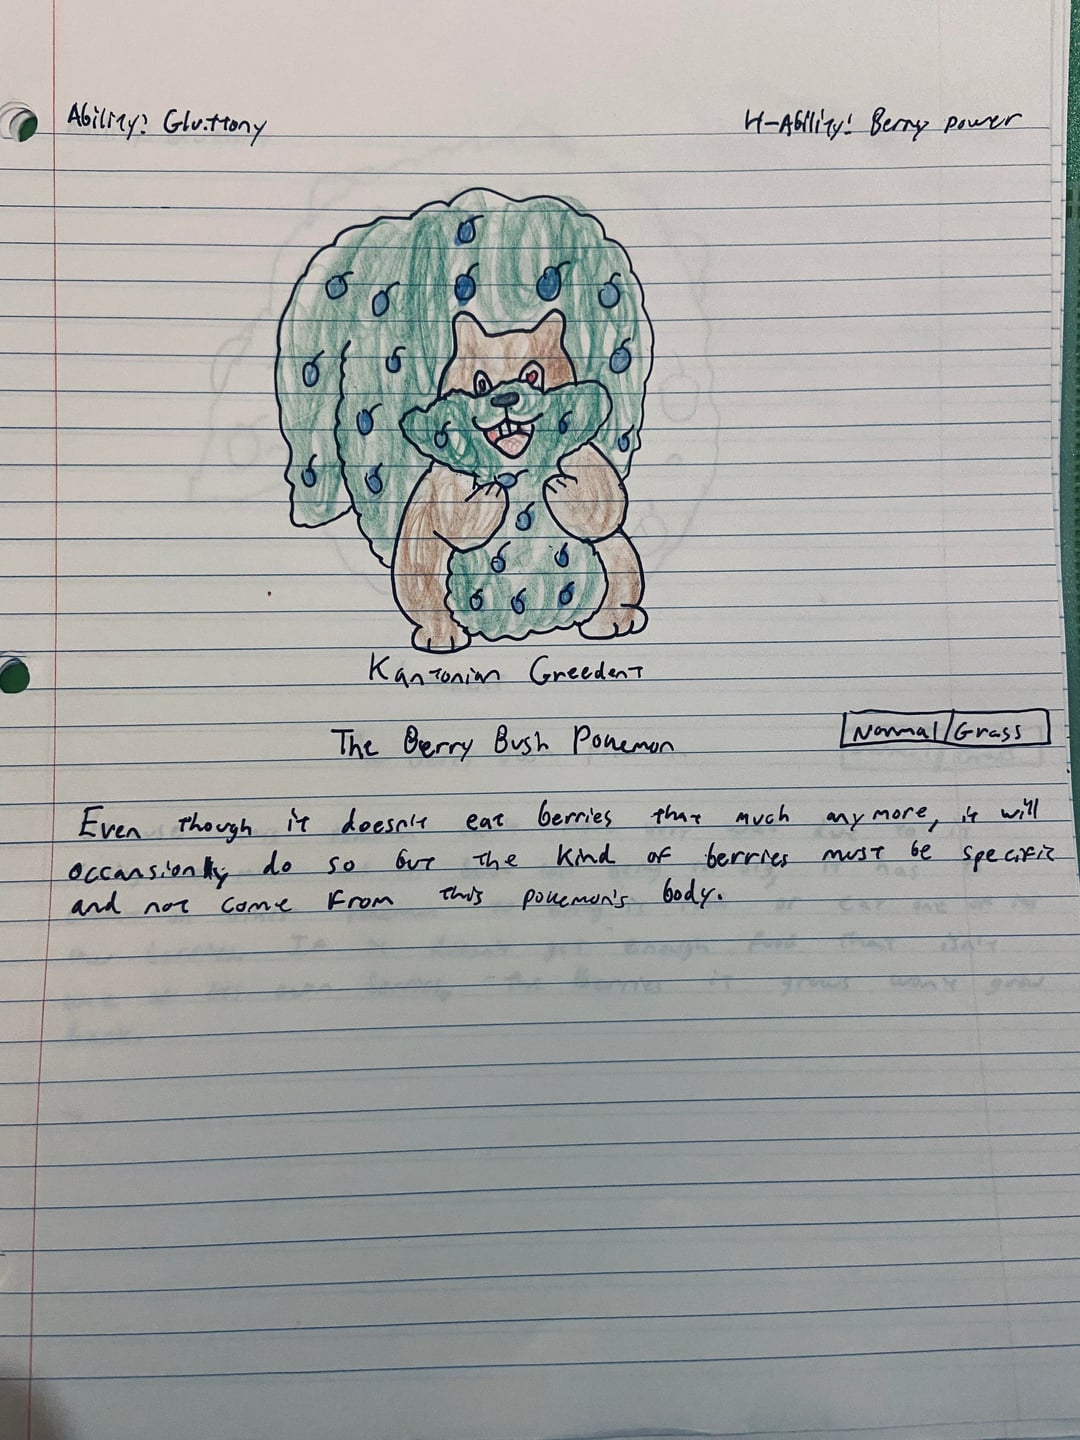 Ability: Gluttony
H-Ability: Berry power
Kantonian Greedent
The Berry Bush Pokemon
Normal/Grass
Even though it doesn't eat berries that much anymore, it will
occansionly do so but the kind of berries must be specific
and not come from this pokemon's body.